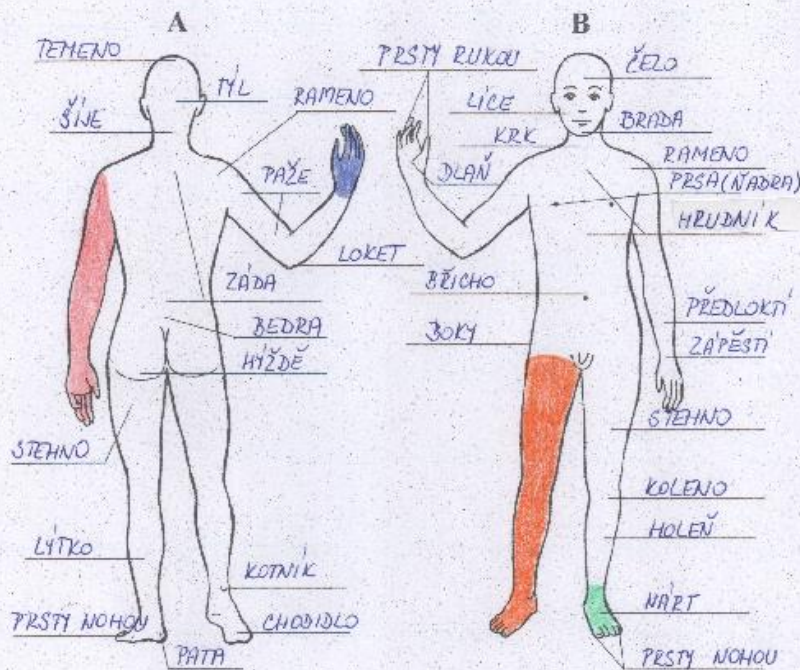 A
TEMENO
TÝL
ŠÍJE
RAMENO
PAŽE
LOKET
ZÁDA
BEDRA
HÝŽDĚ
STEHNO
LÝTKO
KOTNÍK
PRSTY NOHOU
CHODIDLO
PATA
B
PRSTY RUKOU
ČELO
LÍCE
BRADA
KRK
RAMENO
DLAŇ
PRSA (ŇADRA)
HRUDNÍK
BŘICHO
PŘEDLOKTÍ
BOKY
ZÁPĚSTÍ
STEHNO
KOLENO
HOLEŇ
NÁRT
PRSTY NOHOU